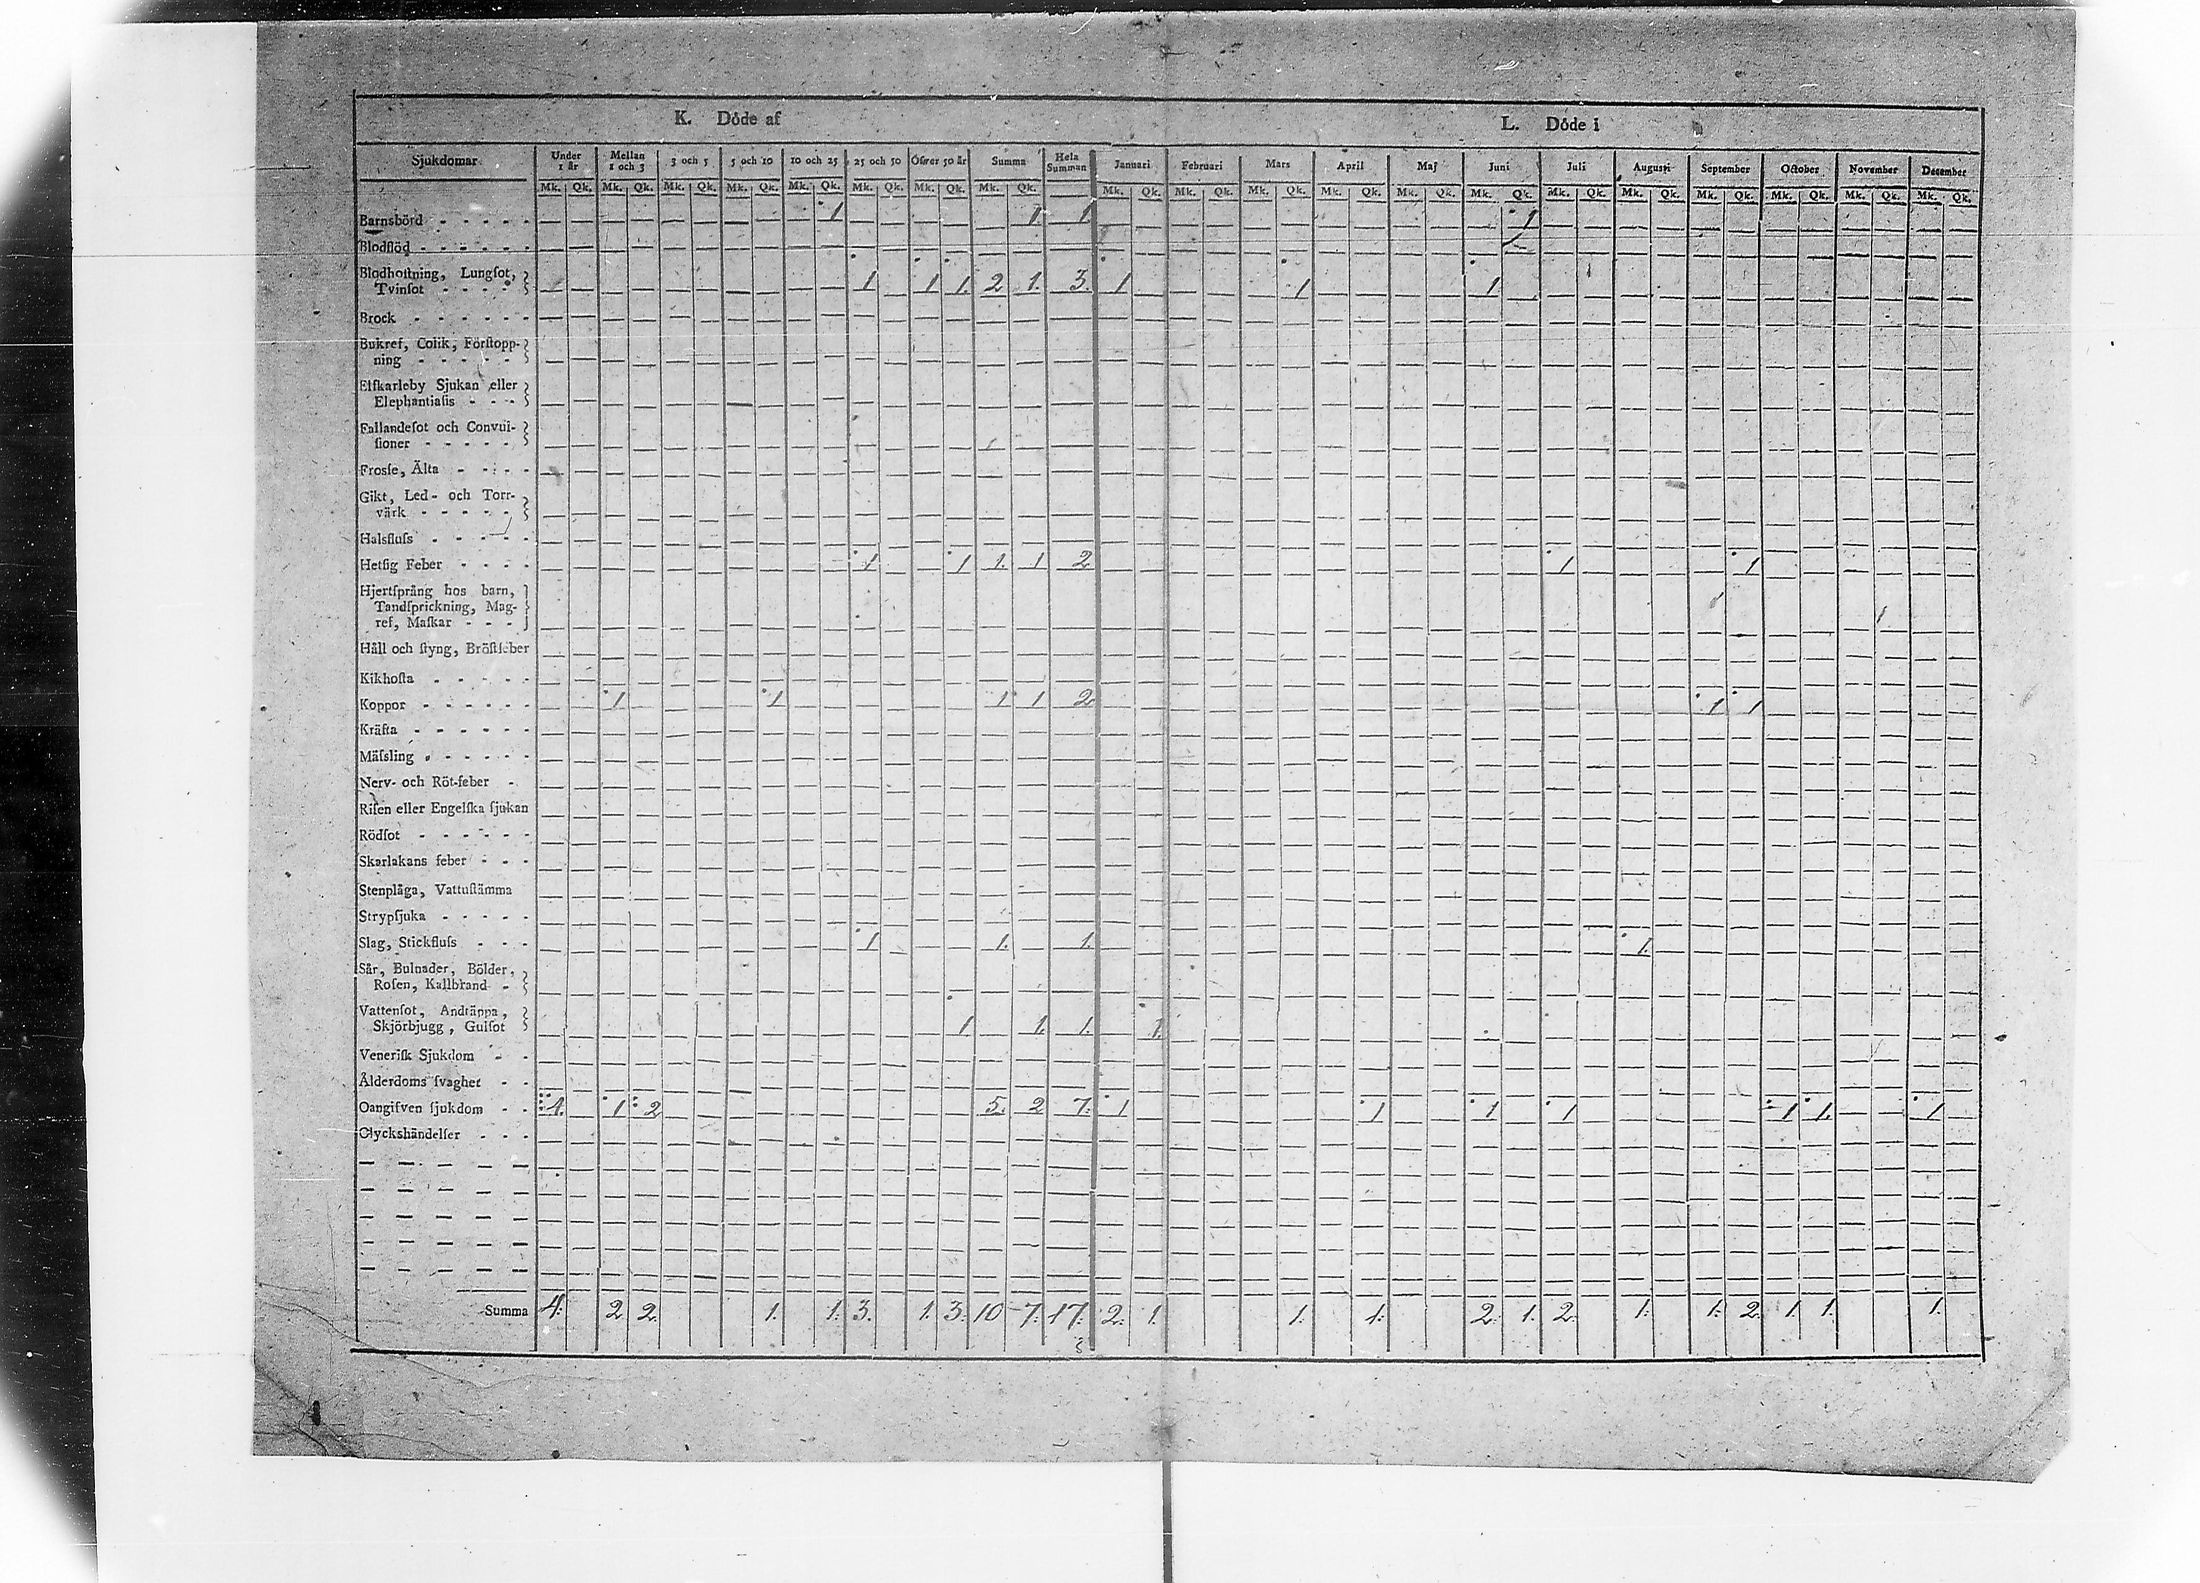 K. Döde af L. Döde i
Sjukdomar Under 1 år Mellan 1 och 3 3 och 5 5 och 10 10 och 25 25 och 50 Öfver 50 år Summa Hela Summan Januari Februari Mars April Maj Juni Juli Augusti September October November December
Mk. Qk. Mk. Qk. Mk. Qk. Mk. Qk. Mk. Qk. Mk. Qk. Mk. Qk. Mk. Qk. Mk. Qk. Mk. Qk. Mk. Qk. Mk. Qk. Mk. Qk. Mk. Qk. Mk. Qk. Mk. Qk. Mk. Qk. Mk. Qk. Mk. Qk. Mk. Qk.
Barnsbörd 1 1 1 1
Blodflöd
Blodhoſtning, Lungſot,
Tvinſot 1 1 1. 2 1. 3. 1 1 1
Brock
Bukref, Colik, Förſtopp-
ning
Elfkarleby Sjukan eller
Elephantiaſis
Fallandeſot och Convul-
ſioner
Frosſe, Älta
Gikt, Led- och Torr-
värk
Halsfluſs
Hetſig Feber 1 1 1. 1 2 1 1
Hjertſprång hos barn,
Tandſprickning, Mag-
ref, Maſkar
Håll och ſtyng, Bröſtfeber
Kikhoſta
Koppor 1 1 1 1 2 1 1
Kräfta
Mäſsling
Nerv- och Röt-feber
Riſen eller Engelſka ſjukan
Rödſot
Skarlakans feber
Stenplåga, Vattuſtämma
Strypſjuka
Slag, Stickfluſs 1 1. 1. 1.
Sår, Bulnader, Bölder,
Roſen, Kallbrand
Vattenſot, Andtäppa,
Skjörbjugg, Gulſot 1 1. 1. 1.
Veneriſk Sjukdom
Ålderdoms ſvaghet
Oangifven ſjukdom 4. 1 2 5. 2 7. 1 1 1 1 1 1. 1
Olyckshändelſer
Summa 4. 2 2. 1. 1. 3. 1. 3. 10 7. 17. 2. 1. 1. 1. 2. 1. 2. 1. 1. 2. 1 1. 1.